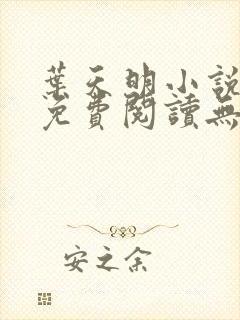 葉天明小說
免費閱讀無
安之余